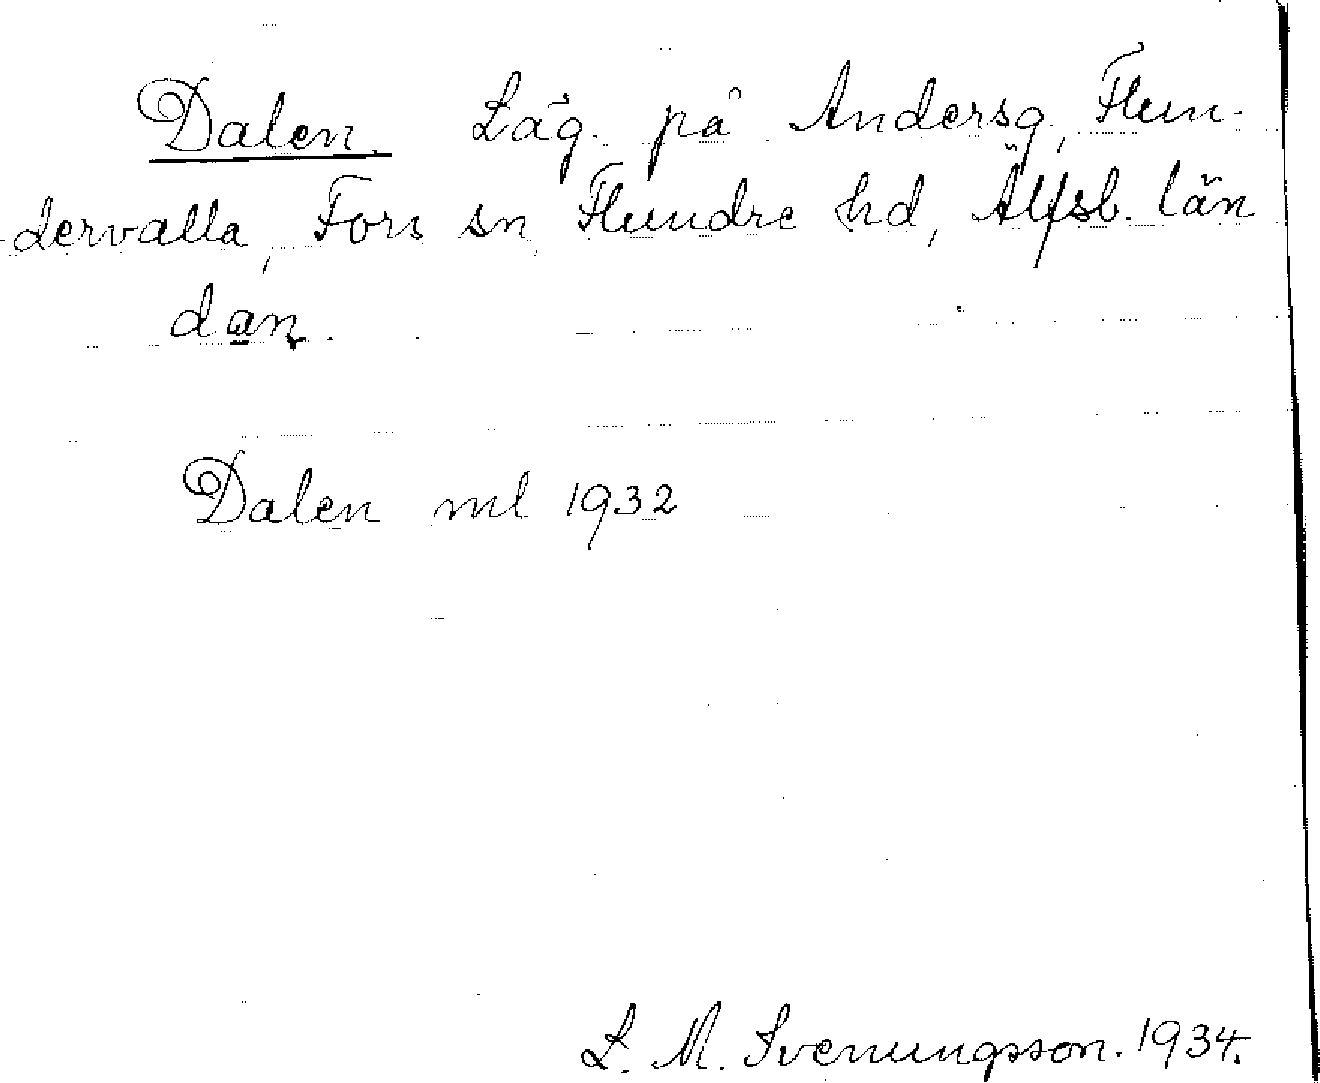 Dalen. Läg. på Andersg, Flun-
dervalla, Fors sn, Flundre hd, Älfsb. län
dan.
Dalen ml 1932
L. M. Svenungsson. 1934.